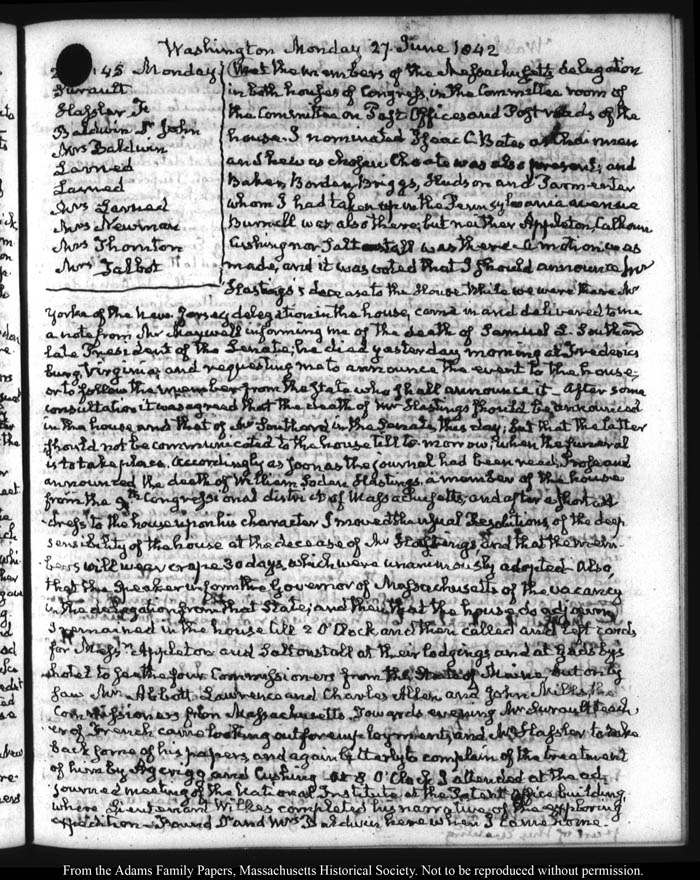 Washington Monday 27 June 1842
45 Monday
Surault
Hassler Jr
Baldwin Dr John
Mrs Baldwin
Larned
Larned
Mrs Larned
Mrs Newman
Mrs Thornton
Mrs Talbot
Met the members of the Massachusetts delegation
in both houses of Congress, in the Committee room of
the Committee on Post Offices and Post roads of the
house. I nominated Isaac C. Bates as Chairman
and he was chosen Choate was also present; and
Baker, Borden, Briggs, Hudson and Parmenter
whom I had taken up in the Pennsylvania avenue
Burnell was also there, but neither Appleton, Calhoun
Cushing nor Saltonstall was there. A motion was
made, and it was voted that I should announce Mr
Hastings's decease to the House. While we were there Mr
Yorke of the New Jersey delegation in the house, came in and delivered to me
a note from Mr Maxwell informing me of the death of Samuel L. Southard
late President of the Senate; he died yesterday morning at Fredericks
burg Virginia; and requesting me to announce the event to the house;
or to follow the member from the State who shall announce it. After some
consultation it was agreed that the death of Mr Hastings should be announced
in the house and that of Mr Southard in the Senate this day; but that the latter
should not be communicated to the house till to-morrow, when the funeral
is to take place. Accordingly as soon as the journal had been read, I rose and
announced the death of William Soden Hastings, a member of the house
from the 9th Congressional district of Massachusetts, and after a short ad
dress to the house upon his character I moved the usual Resolutions of the deep
sensibility of the house at the decease of Mr Hastings, and that the mem-
bers will wear crape 30 days, which were unanimously adopted. Also
that the Speaker inform the Governor of Massachusetts of the vacancy
in the delegation from that State; and then that the house do adjourn
I remained in the house till 2 O'Clock and then called and left cards
for Messrs Appleton and Saltonstall at their lodgings and at Gadsby's
hotel to see the four Commissioners from the State of Maine but only
saw Mr. Abbott Lawrence and Charles Allen and John Mills, the
Commissioners from Massachusetts. Towards evening Mr Surault teach
er of French came looking out for employment; and Mr Hassler to take
back some of his papers, and again bitterly to complain of the treatment
of him by Aycrigg and Cushing. At 8 O'Clock I attended at the ad-
journed meeting of the National Institute at the Patent office building,
where Lieutenant Wilkes completed his narrative of the exploring
expedition. Found Dr and Mrs Baldwin here when I came home.
From the Adams Family Papers, Massachusetts Historical Society. Not to be reproduced without permission.